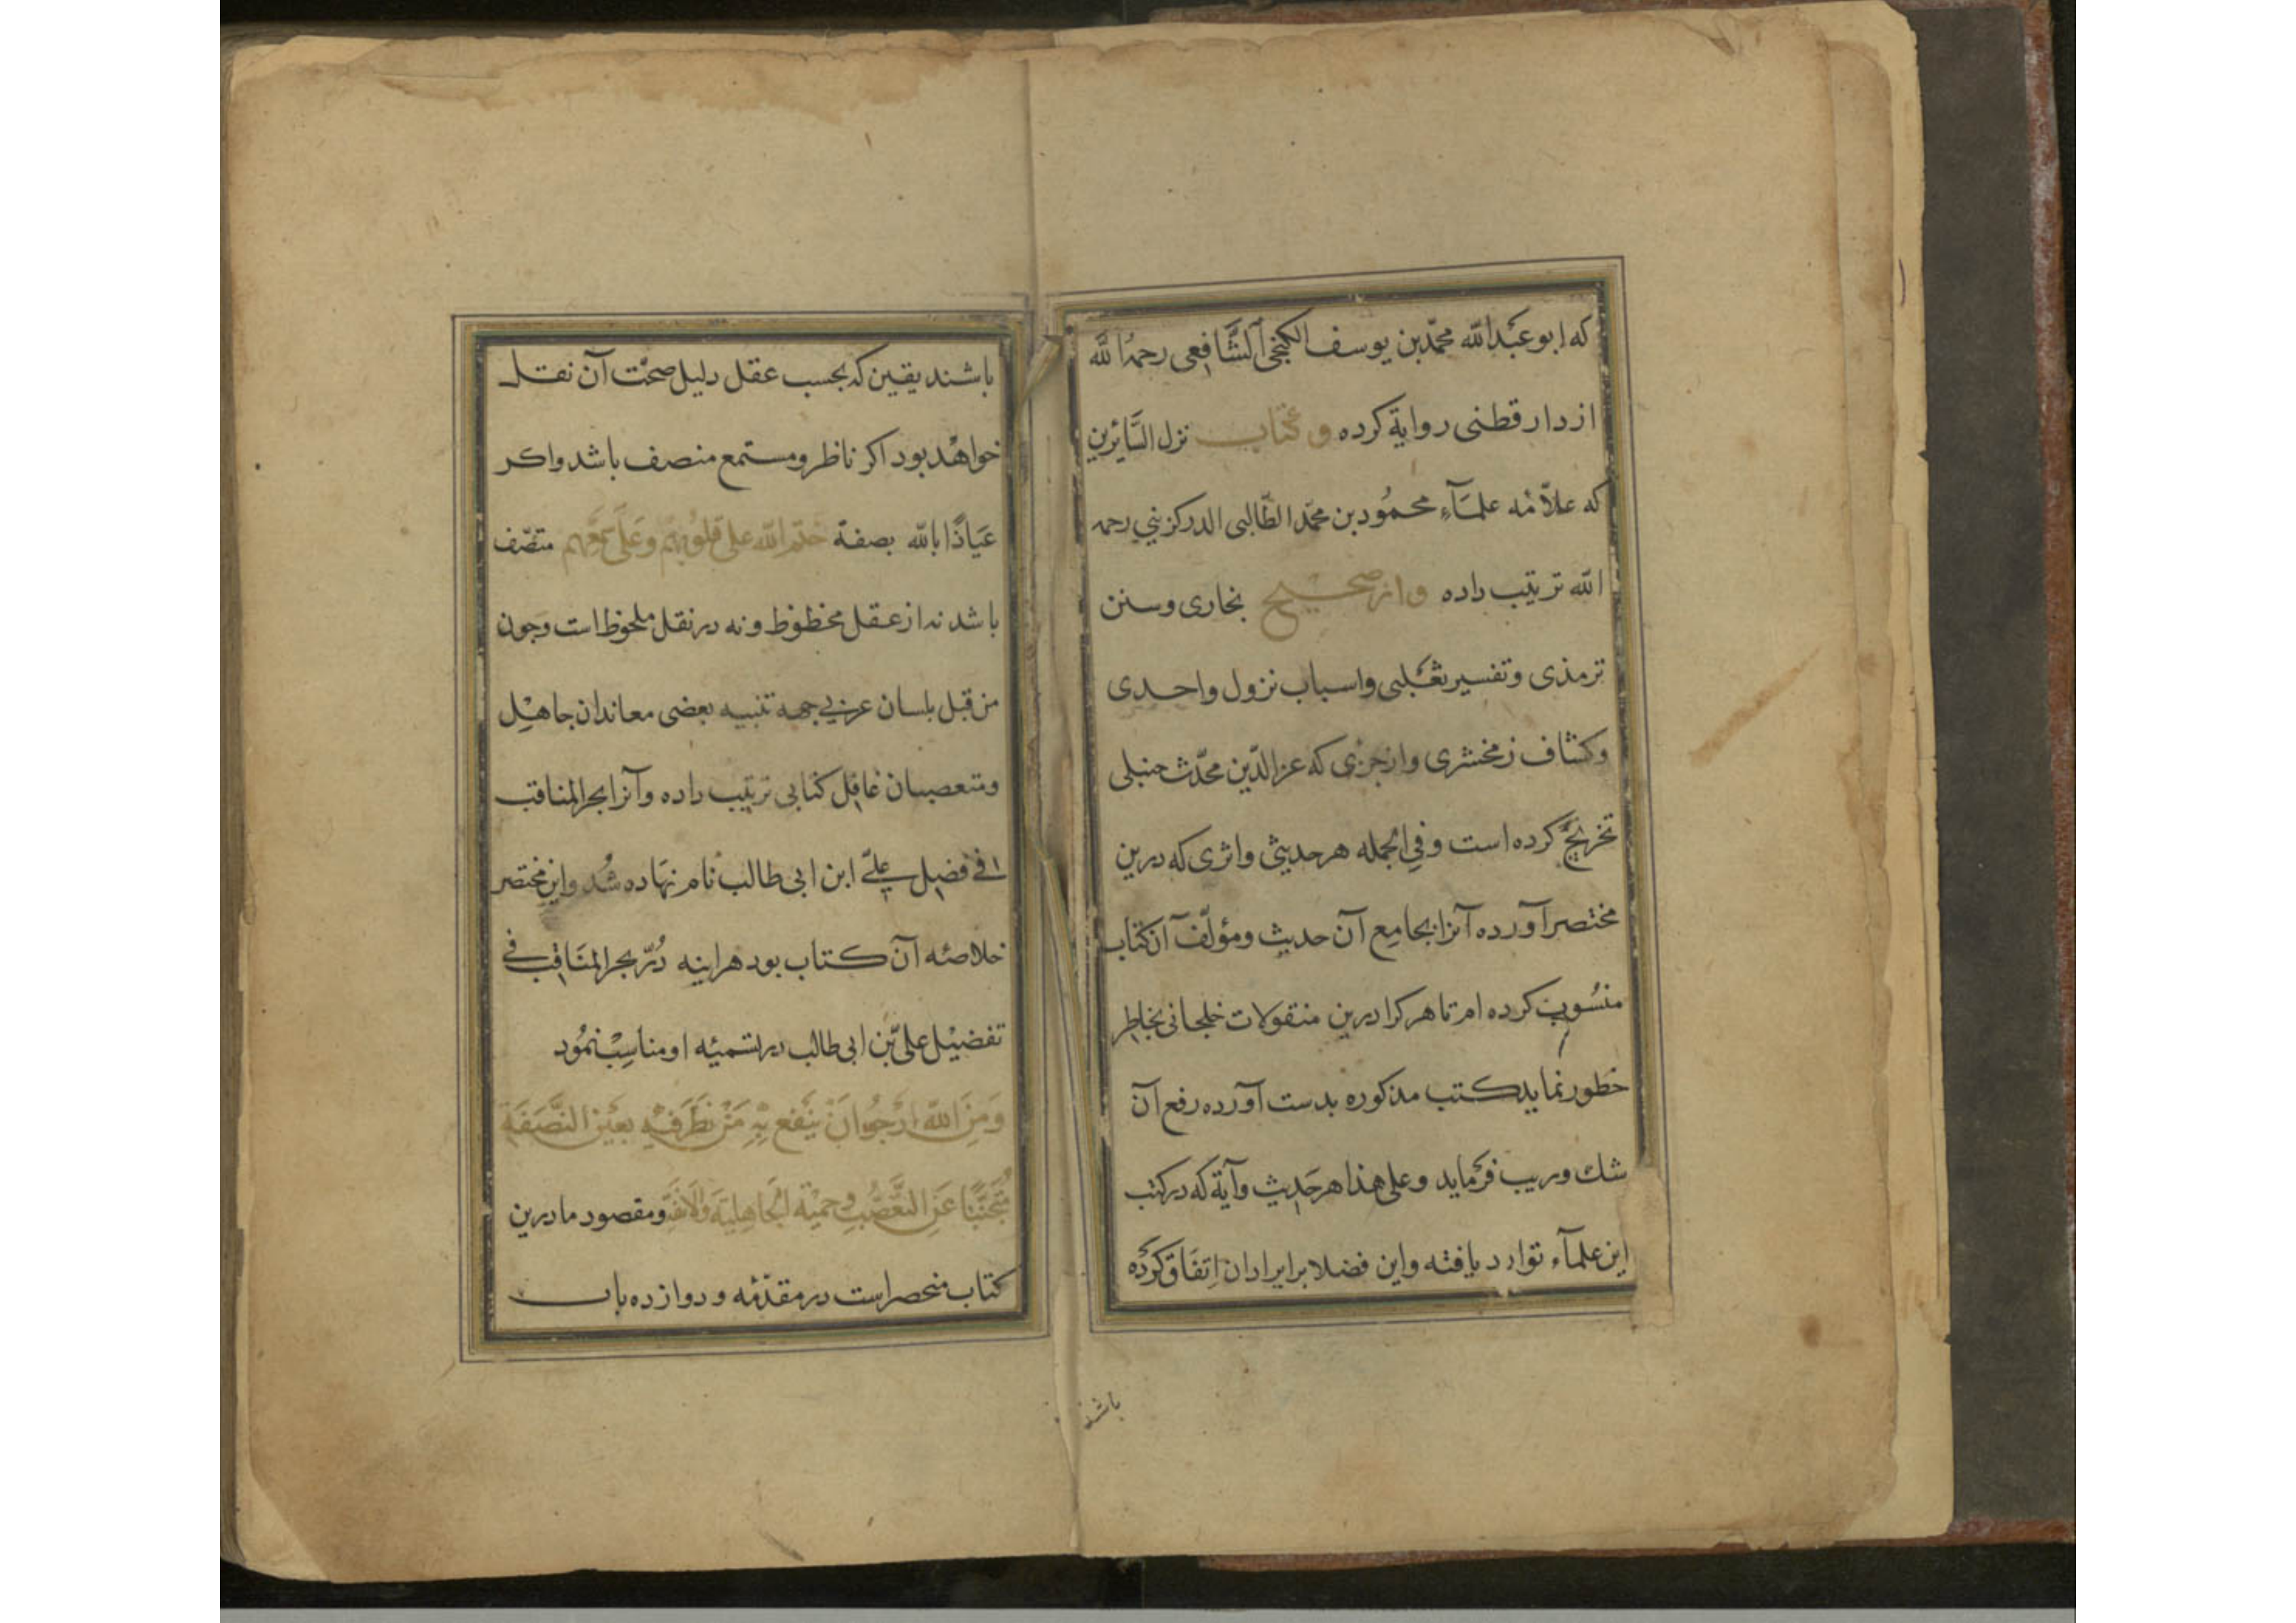 که ابو عبد الله محمّد بن یوسف الکنجی الشّافعی رحمه الله
از دار قطنی روایة کرده و کتاب نزل السّایرین
که علاّمه علمآء محمُود بن محمّد الطّالبی الدرکزینی رحمه
الله ترتیب داده و از صحیح بخاری و سنن
ترمذی و تفسیر ثعلبی و اسباب نزول واحدی
و کشاف زمخشری و از جزی که عز الدّین محدّث حنبلی
تخریج کرده است و فی الجمله هر حدیثی و اثری که درین
مختصر آورده آنرا بجامع آن حدیث و مؤلّف آن کتاب
منسُوب کرده ام تا هر کرا درین منقولات خلجانی بخاطر
خطور نماید کتب مذکوره بدست آورده رفع آن
شك و ریب فرماید و علی هذا هر حدیث و آیة که در کتب
این علمآء توارد یافته و این فضلا بر ایراد آن اتفاق کرده
باشند
باشند یقین که بحسب عقل دلیل صحّت آن نقل
خواهد بود اکر ناظر و مستمع منصف باشد و اکر
عیاذًا بالله بصفة ختم الله علی قلوبهم و علی سمعهم متصّف
باشد نه از عقل محظوظ و نه در نقل ملحوظ است و جون
من قبل بلسان عربی بجهة تنبیه بعضی معاندان جاهل
و متعصبان غافل کتابی ترتیب داده و آنرا بحر المناقب
فی فضل علیّ ابن ابی طالب نام نهاده شُد و این مختصر
خلاصهٔ آن کتاب بود هراینه دُرّ بحر المنَاقب فی
تفضیل علیّ بن ابی طالب در تسمیهٔ او مناسب نمُود
وَمِنَ الله ارْجُو انْ یَنفع بِهِ مَنْ نَظَرَ فیْهِ بعَیْن النَّصَفَةِ
مُتَجَنّبًا عَنِ التَّعَصُّبِ و حَمیّة الجَاهِلیّةِ وَالاَنَفَة و مقصود ما درین
کتاب منحصر است در مقدّمه و دوازده باب